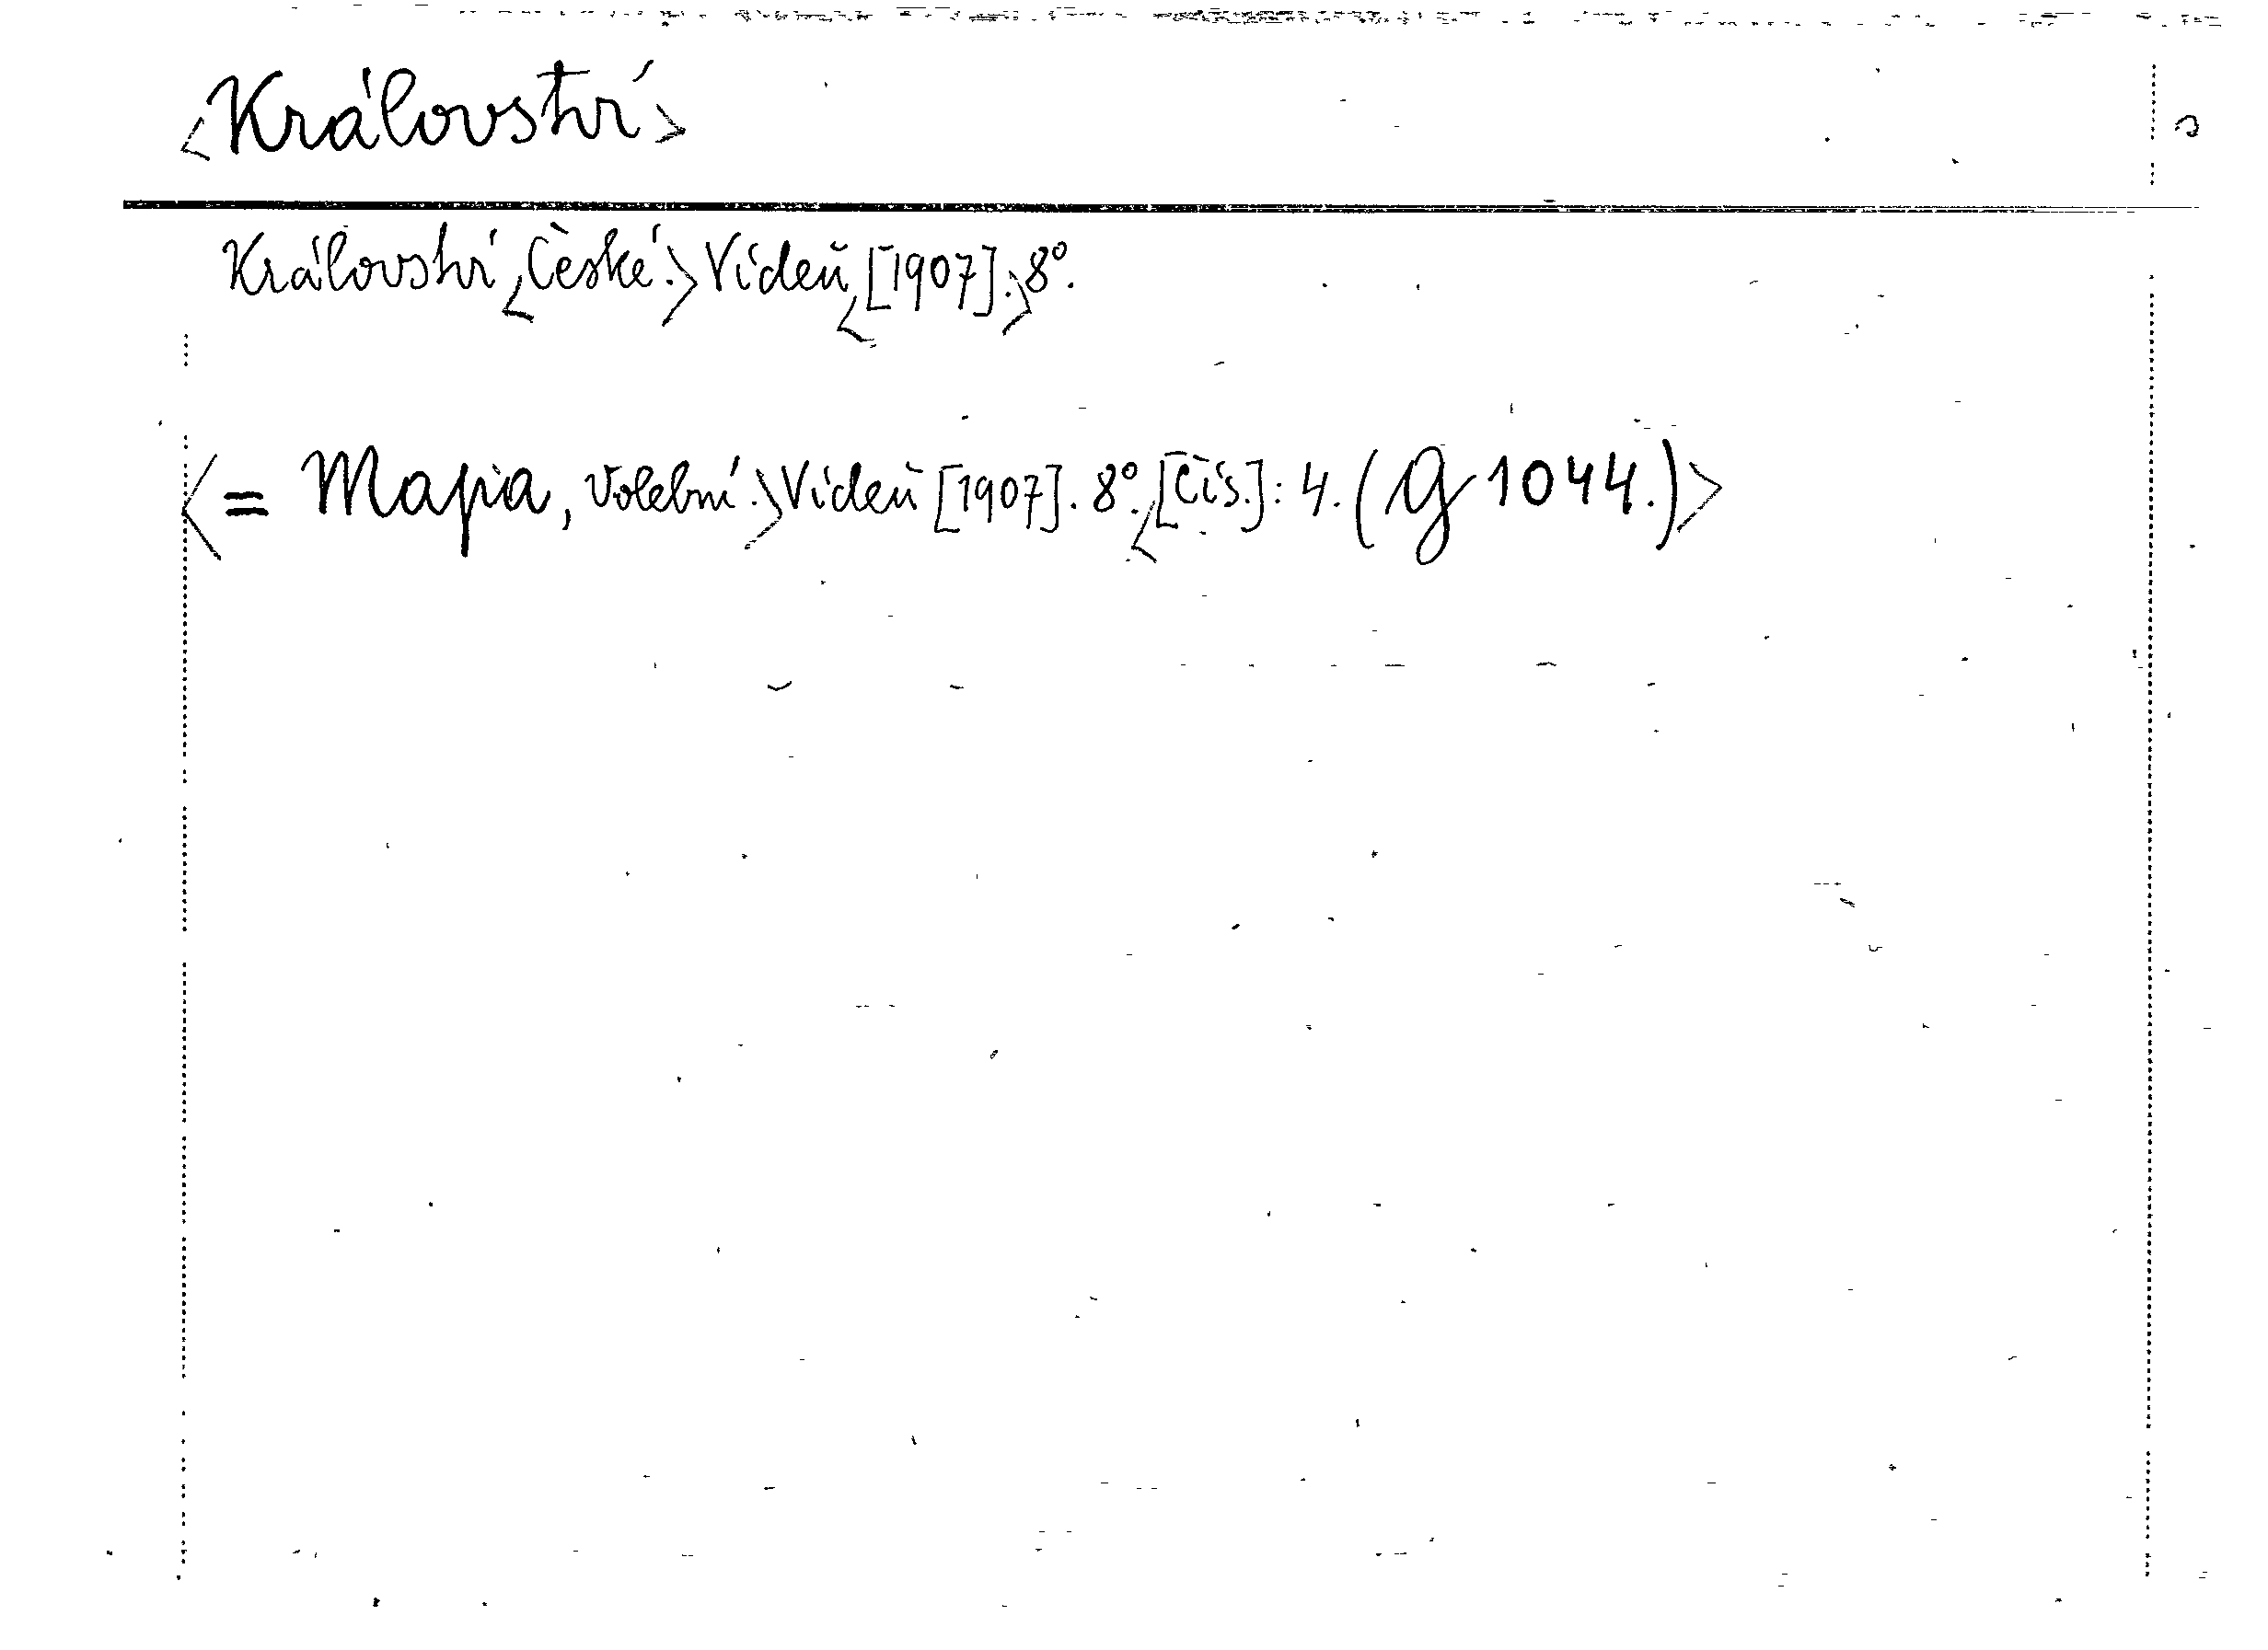 <Království>
Království <České.> Vídeň <[1907].> 8°.
<= Mapa, volební.> Vídeň [1907]. 8°. <[Čís.]: 4. (G 1044.)>